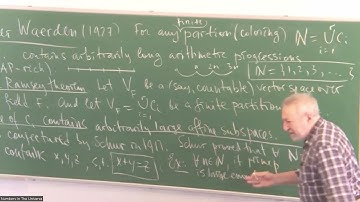 er Waerden (1927) For any finite partion (coloring) N = ∪ Ci
contains arbitrarily long arithmetic progressions
AP-rich). N = {1, 2, 3, ...}
Ramsey theorem. Let V_F be a (say, countable) vector space over
field F. And let V_F = ∪ Ci be a finite partition
one of C contains arbitrarily large affine subspaces.
conjectured by Schur in 1917. Schur proved that ∀ N
contain x, y, z, s.t. x+y=z Ex. ∀n∈N, if prime p
is large enou
Numbers In The Universe